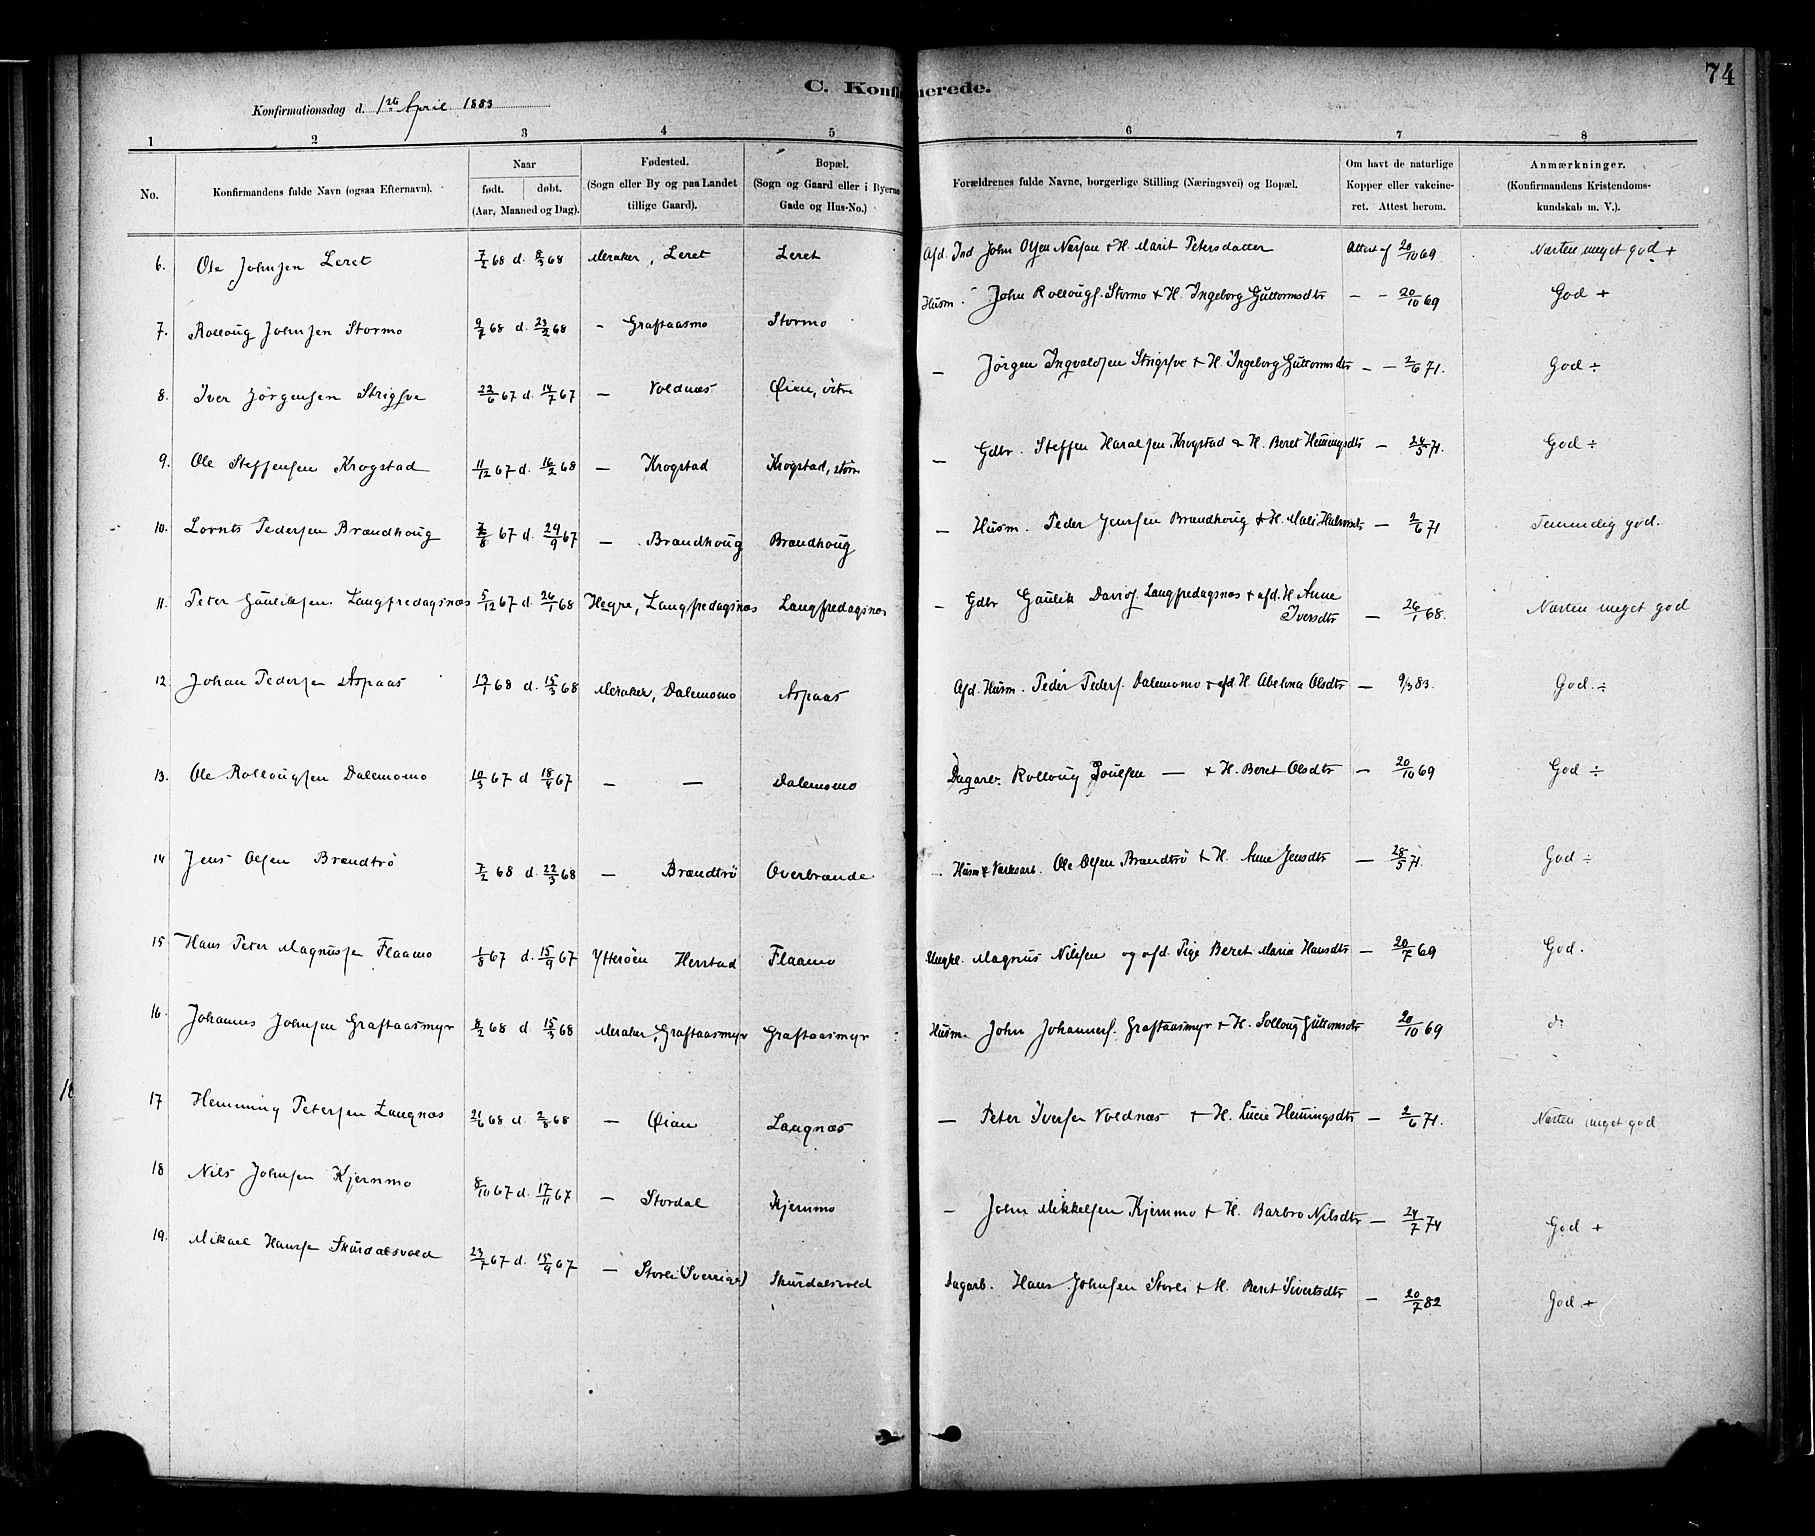 74
C. Konfirmerede.
Konfirmationsdag d. 1ste April 1883
1 2 3 4 5 6 7 8
No. Konfirmandens fulde Navn (ogsaa Efternavn). Naar født. døbt. (Aar, Maaned og Dag). Fødested. (Sogn eller By og paa Landet tillige Gaard). Bopæl. (Sogn og Gaard eller i Byerne Gade og Hus-No.) Forældrenes fulde Navne, borgerlige Stilling (Næringsvei) og Bopæl. Om havt de naturlige Kopper eller vakcineret. Attest herom. Anmærkninger. (Konfirmandens Kristendomskundskab m. V.).
6. Ole Johnsen Leret 7/2 68 d. 8/3 68 Meraker, Leret Leret Afd. Ind John Olsen + H. Marit Petersdatter Attest af 20/10 69 Næsten meget god +
7. Rolloug Johnsen Stormo 9/2 68 d. 23/2 68 - Graftaasmo Stormo Husm. John Rollougs. Stormo + H. Ingeborg Guttormsdtr - - 20/10 69 God +
8. Iver Jörgensen Strigsve 22/6 67 d. 14/7 67 - Voldnæs Øien, ötre - Jörgen Ingvaldsen Strigsve + H. Ingeborg Guttormsdtr - - 2/6 71. God ÷
9. Ole Steffensen Krogstad 11/12 67 d. 16/2 68 - Krogstad Krogstad, - Gdbr. Steffen Haralsen Krogstad & H. Beret Hemingsdtr - 24/5 71. God ÷
10. Lornts Pedersen Brændhoug 7/8 67 d. 29/9 67 - Brændhoug Brændhoug - Husm. Peder Jensen Brændhoug + H. Mali - 2/6 71 Temmelig god.
11. Peter Gauliksen Langfredagsnæs 5/12 67 d. 26/1 68 Hegre, Langfredagsnæs Langfredagsnæs - Gdbr Gaulik Davids. Langfredagsnæs + afd. H. Anne Iversdtr - 26/1 68. Næsten meget god
12. Johan Pedersen Aspaas 13/1 68 d. 15/3 68 Meraker, Dalemomo Aspaas Afd. Husm. Peder Peders. Dalemomo + afd H. Abelona Olsdtr - 9/3 83. God. ÷
13. Ole Rollougsen Dalemomo 10/3 67 d 18/4 67 - - Dalemomo Dagarb. Rolloug Poulsen - + H. Beret Olsdtr - 20/10 69 God ÷
14 Jens Olsen Brændtrö 7/2 68 d. 22/3 68 - Brændtrö Overbrænde - Husm & Værksarb. Ole Olsen Brændtrö + H. Anne Jensdtr - 28/5 71. God ÷
15 Hans Peter Magnussen Flaamo 1/8 67 d. 15/9 67 Ytteröen Herstad Flaamo Ungkl. Magnus Nilssen og afd. Pige Beret Maria Hansdtr - 20/7 69 God.
16. Johannes Johnsen Graftaasmyr 8/2 68 d. 15/3 68 Meraker, Graftaasmyr Graftaasmyr Husm. John Johanness. Graftaasmyr + H. Solloug Guttormsdtr 20/10 69 do
17 Hemming Petersen Langnæs 21/6 68 d. 2/8 68 - Øian Langnæs - Peter Iversen Voldnæs + H. Lucie Hemingsdtr - 2/6 71. Næsten meget god
18 Nils Johnsen Kjernmo 8/10 67 d. 17/11 67 - Stordal Kjernmo - John Mikkelsen Kjernmo + H. Barbro Nilsdtr - 24/7 74 God +
19. Mikael Hansen Skurdalsvold 23/7 67 d. 15/9 67 - Storli (Sverrige) Skurdalsvold Dagarb. Hans Johnsen Storli + H. Beret Sivertsdtr - 20/7 82 God. +